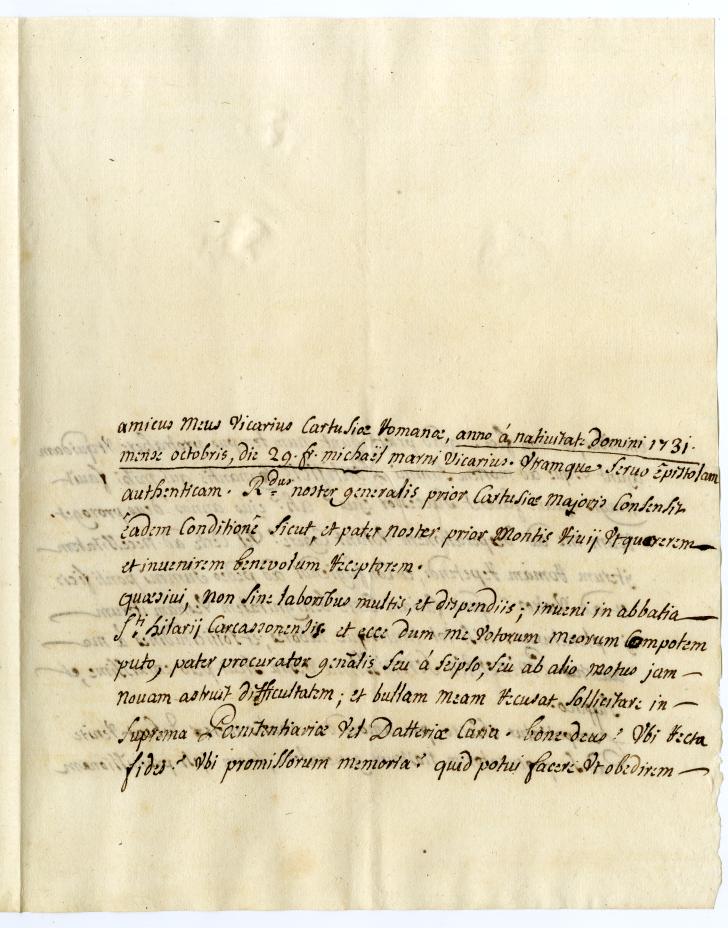 amicus meus vicarius Cartusiæ romanæ, anno á nativitate domini 1731.
mense octobris, die 29. fr. michaël marni vicarius. Utramque servo epistolam
authenticam. R.dus noster generalis prior Cartusiæ majoris consensit
eadem conditione sicut, et pater noster prior montis rivij ut quærerem
et invenirem benevolum receptorem.
quæsivi, non sine laboribus multis, et dispendiis; inveni in abbatia
s.ti hilarij Carcassonensis. et ecce dum me votorum meorum compotem
puto, pater procurator genālis seu á seipso, seu ab alio motus jam
novam astruit difficultatem; et bullam meam recusat sollicitare in
suprema Pœnitentiariæ vel Datteriæ Curia. bone deus? Vbi recta
fides? Vbi promissorum memoria? quid potui facere vt obedirem